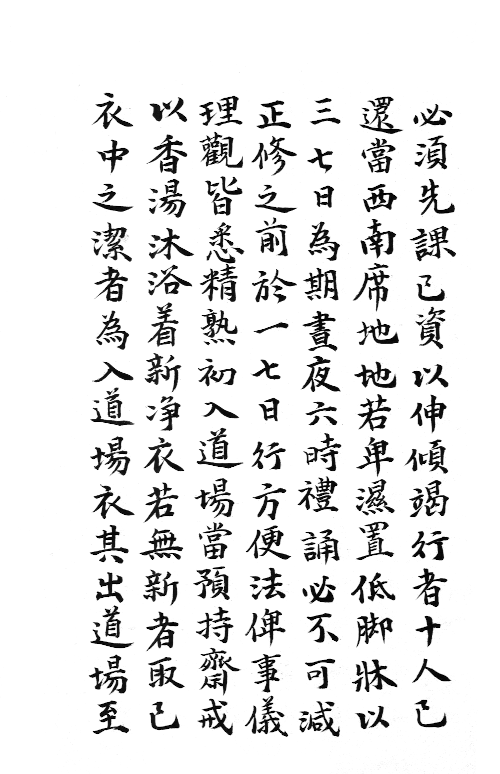 必須先課已資以伸傾竭行者十人已
還當西南席地地若卑濕置低脚牀以
三七日為期晝夜六時禮誦必不可減
正修之前於一七日行方便法俾事儀
理觀皆悉精熟初入道場當預持齋戒
以香湯沐浴着新净衣若無新者取已
衣中之潔者為入道場衣其出道場至